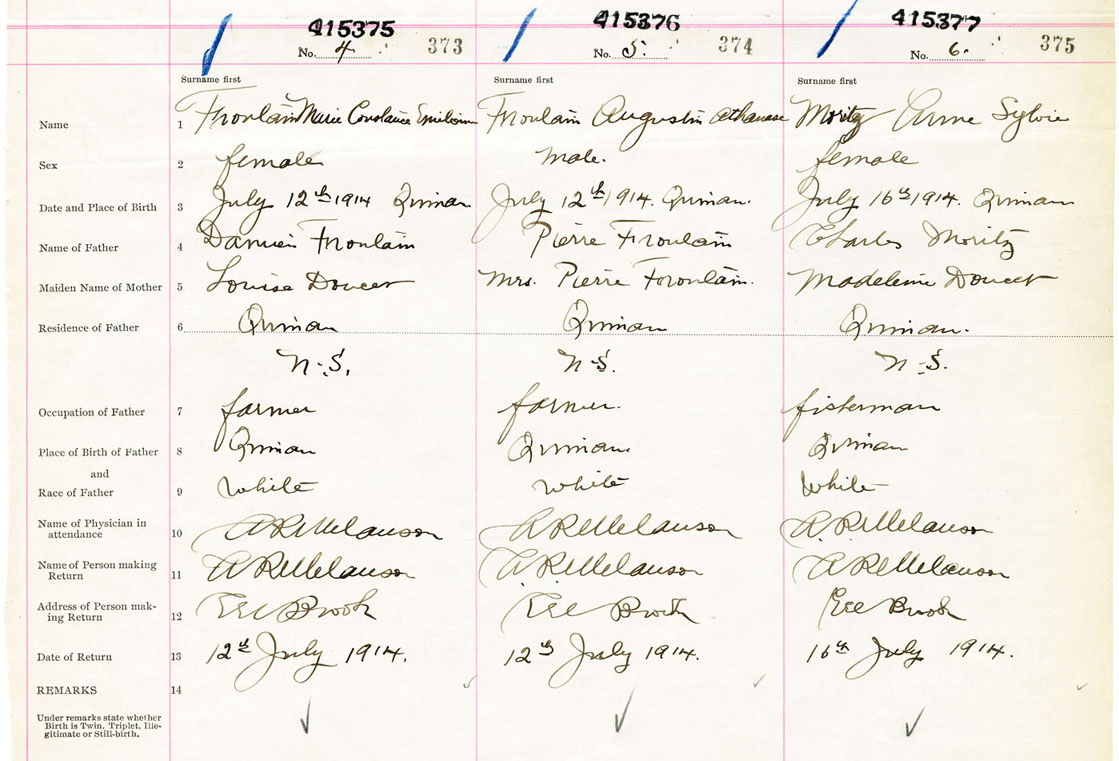 415375 415376 415377
No. 4 373 No. 5. 374 No. 6. 375
Surname first Surname first Surname first
Name 1 Froulain Marie Constance Froulain Augustin Athanase Moritz Anne Sylvie
Sex 2 female male. female
Date and Place of Birth 3 July 12th 1914 Quinan July 12th 1914. Quinan. July 16th 1914. Quinan
Name of Father 4 Damien Froulain Pierre Froulain Charles Moritz
Maiden Name of Mother 5 Louise Doucet Mrs. Pierre Froulain. Madeleine Doucet
Residence of Father 6 Quinan Quinan Quinan.
N.S. N.S. N.S.
Occupation of Father 7 farmer farmer. fisterman
Place of Birth of Father 8 Quinan Quinan. Quinan
and
Race of Father 9 White White White
Name of Physician in
attendance 10 A R Melanson A R Melanson A. R. Melanson
Name of Person making
Return 11 A R Melanson A. R. Melanson A R Melanson
Address of Person mak-
ing Return 12 Eel Brook Eel Brook Eel Brook
Date of Return 13 12th July 1914. 12th July 1914. 16th July 1914.
REMARKS 14
Under remarks state whether
Birth is Twin, Triplet, Ille-
gitimate or Still-birth.